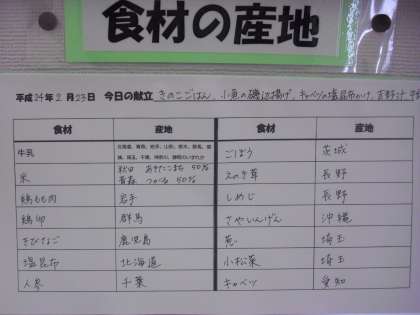 食材の産地
平成24年2月23日 今日の献立 きのこごはん、小魚の磯辺揚げ、キャベツの塩昆布かけ、吉野汁、牛
食材 産地 食材 産地
牛乳 ごぼう 茨城
米 秋田 あきたこまち 50% 青森 つがる 50% えのき茸 長野
鶏もも肉 岩手 しめじ 長野
鶏卵 群馬 さやいんげん 沖縄
きびなご 鹿児島 葱 埼玉
塩昆布 北海道 小松菜 埼玉
人参 千葉 キャベツ 愛知